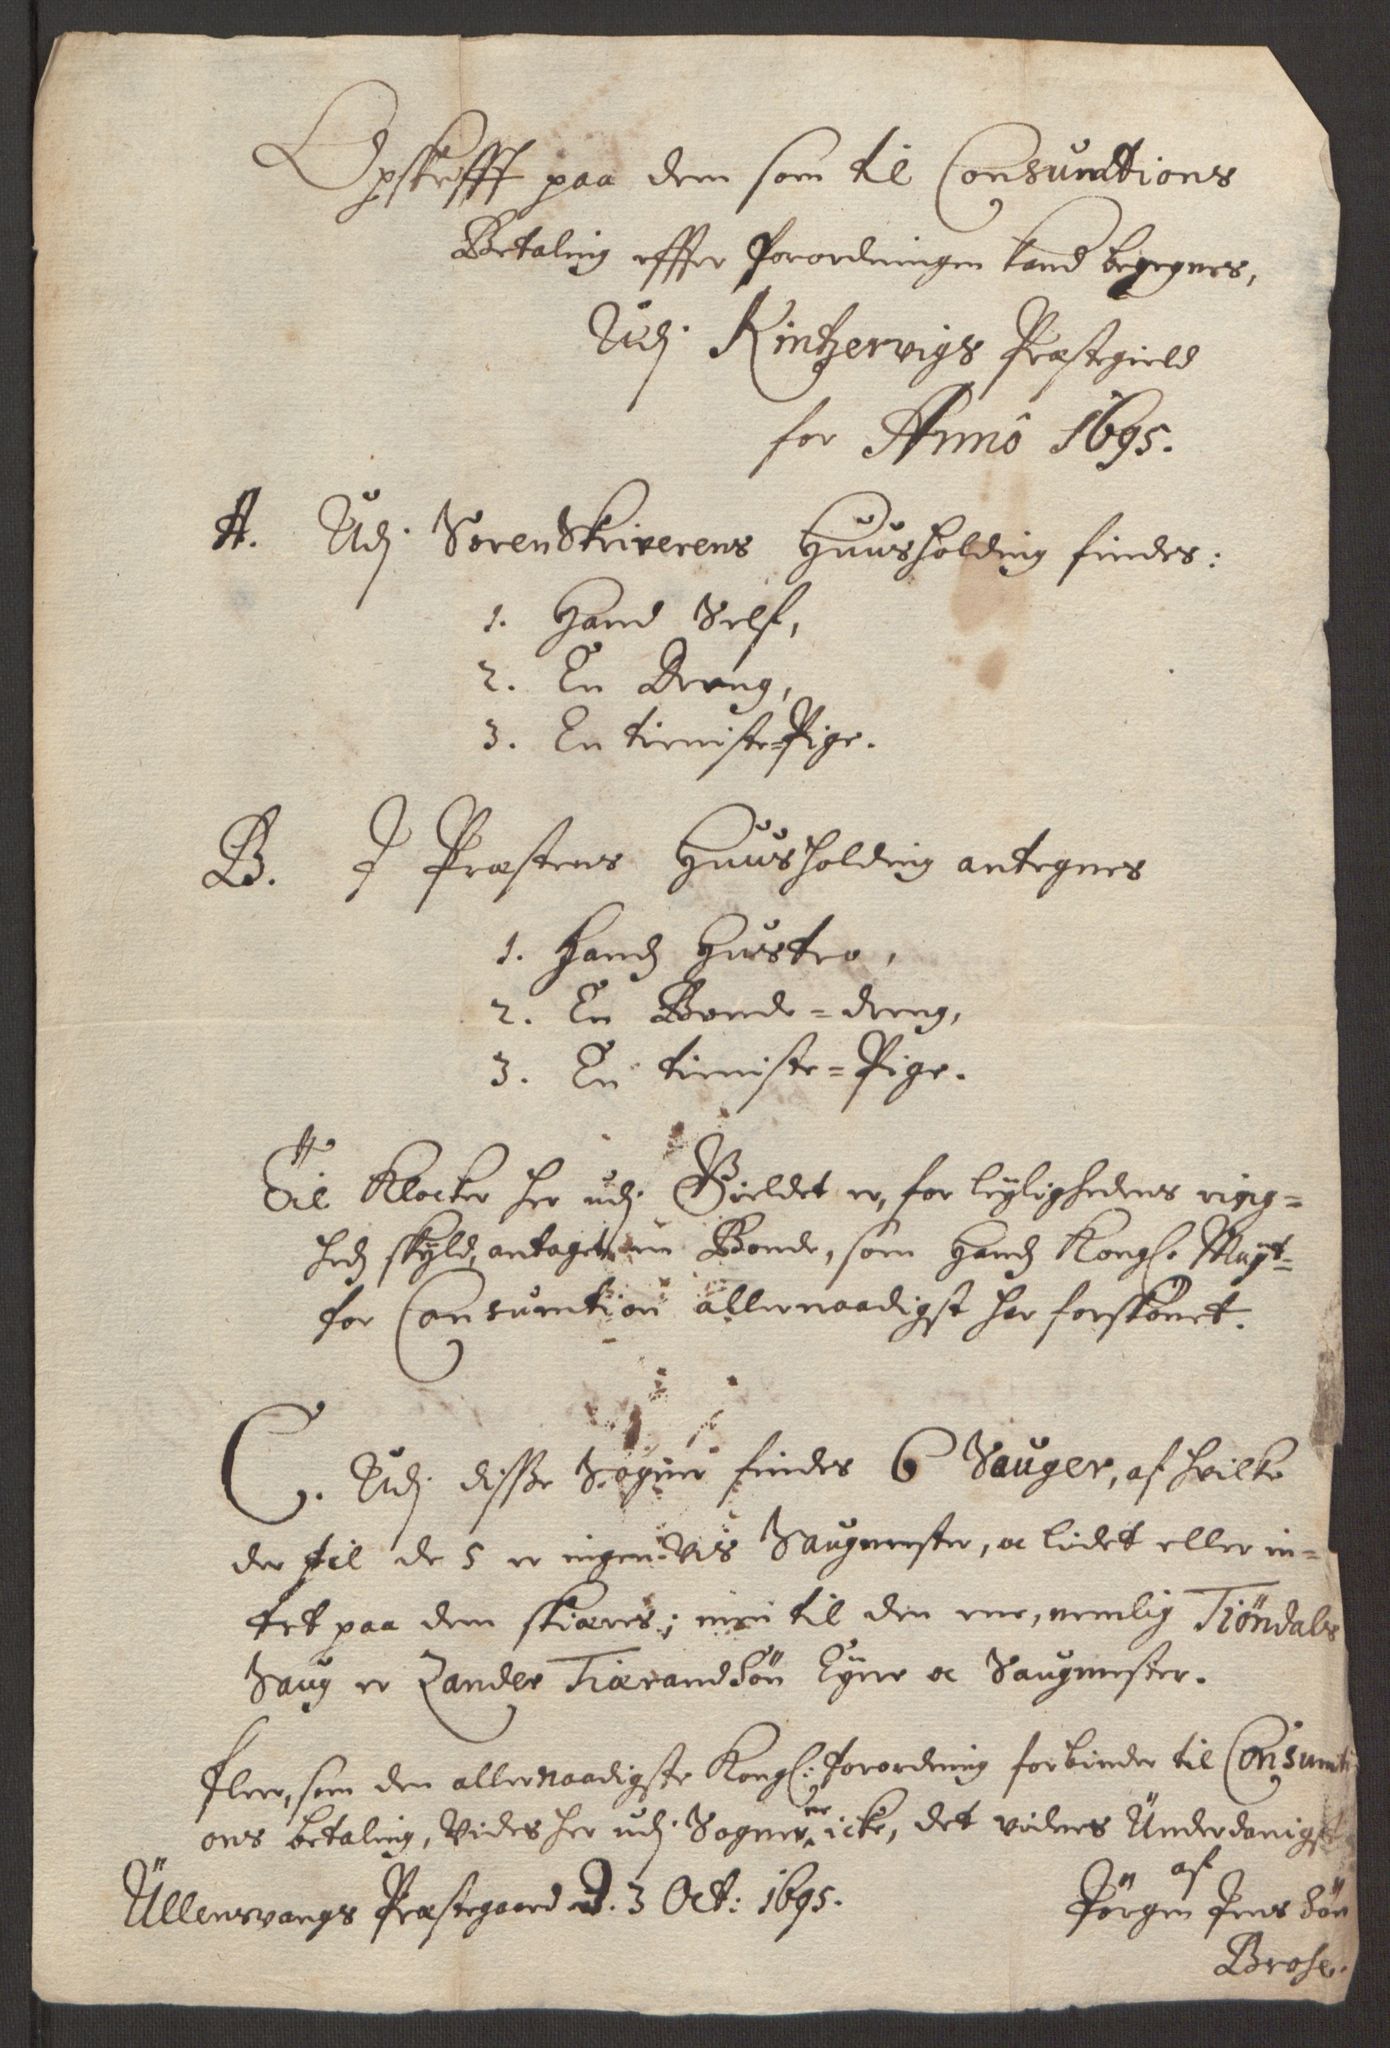 Opskrifft paa dem som til Consumtions
Betaling effter Forordningen kand begegnes,
Udj Kintzervigs Præstegield
for Annô 1695.
A. Udj SorenSkriverens Huusholding findes:
1. Hand Self,
2. En Dreng,
3. En tieniste-Pige.
B. J Præstens Huusholding antegnes
1. Handß Hustro,
2. En Bonde-dreng,
3. En tieniste-Pige.
Til Klocker her udj Gieldet er, for leylighedens ring-
hedß skyld, antaget en Bonde, som Handß Kongl. Mayt-
for Consumtion allernaadigst har forskônet.
C. Udj disse Sogner findes 6 Sauger, af hvilke
der til de 5 er ingen vis Saugmester, oc lidet eller in-
tet paa dem skiæres; men til den ene, nemlig Tiöndals
Saug er Zander Tiærandsön Eyer oc Saugmester.
Fleer, som den allernaadigste Kongl: Forordning forbinder til Consumti
ons betaling, vides her udj Sognerne icke, det vidnes Underdanigst
af
Üllensvangs Præstegaard d. 3 Oct: 1695. Jörgen Jens Sön
Brose.